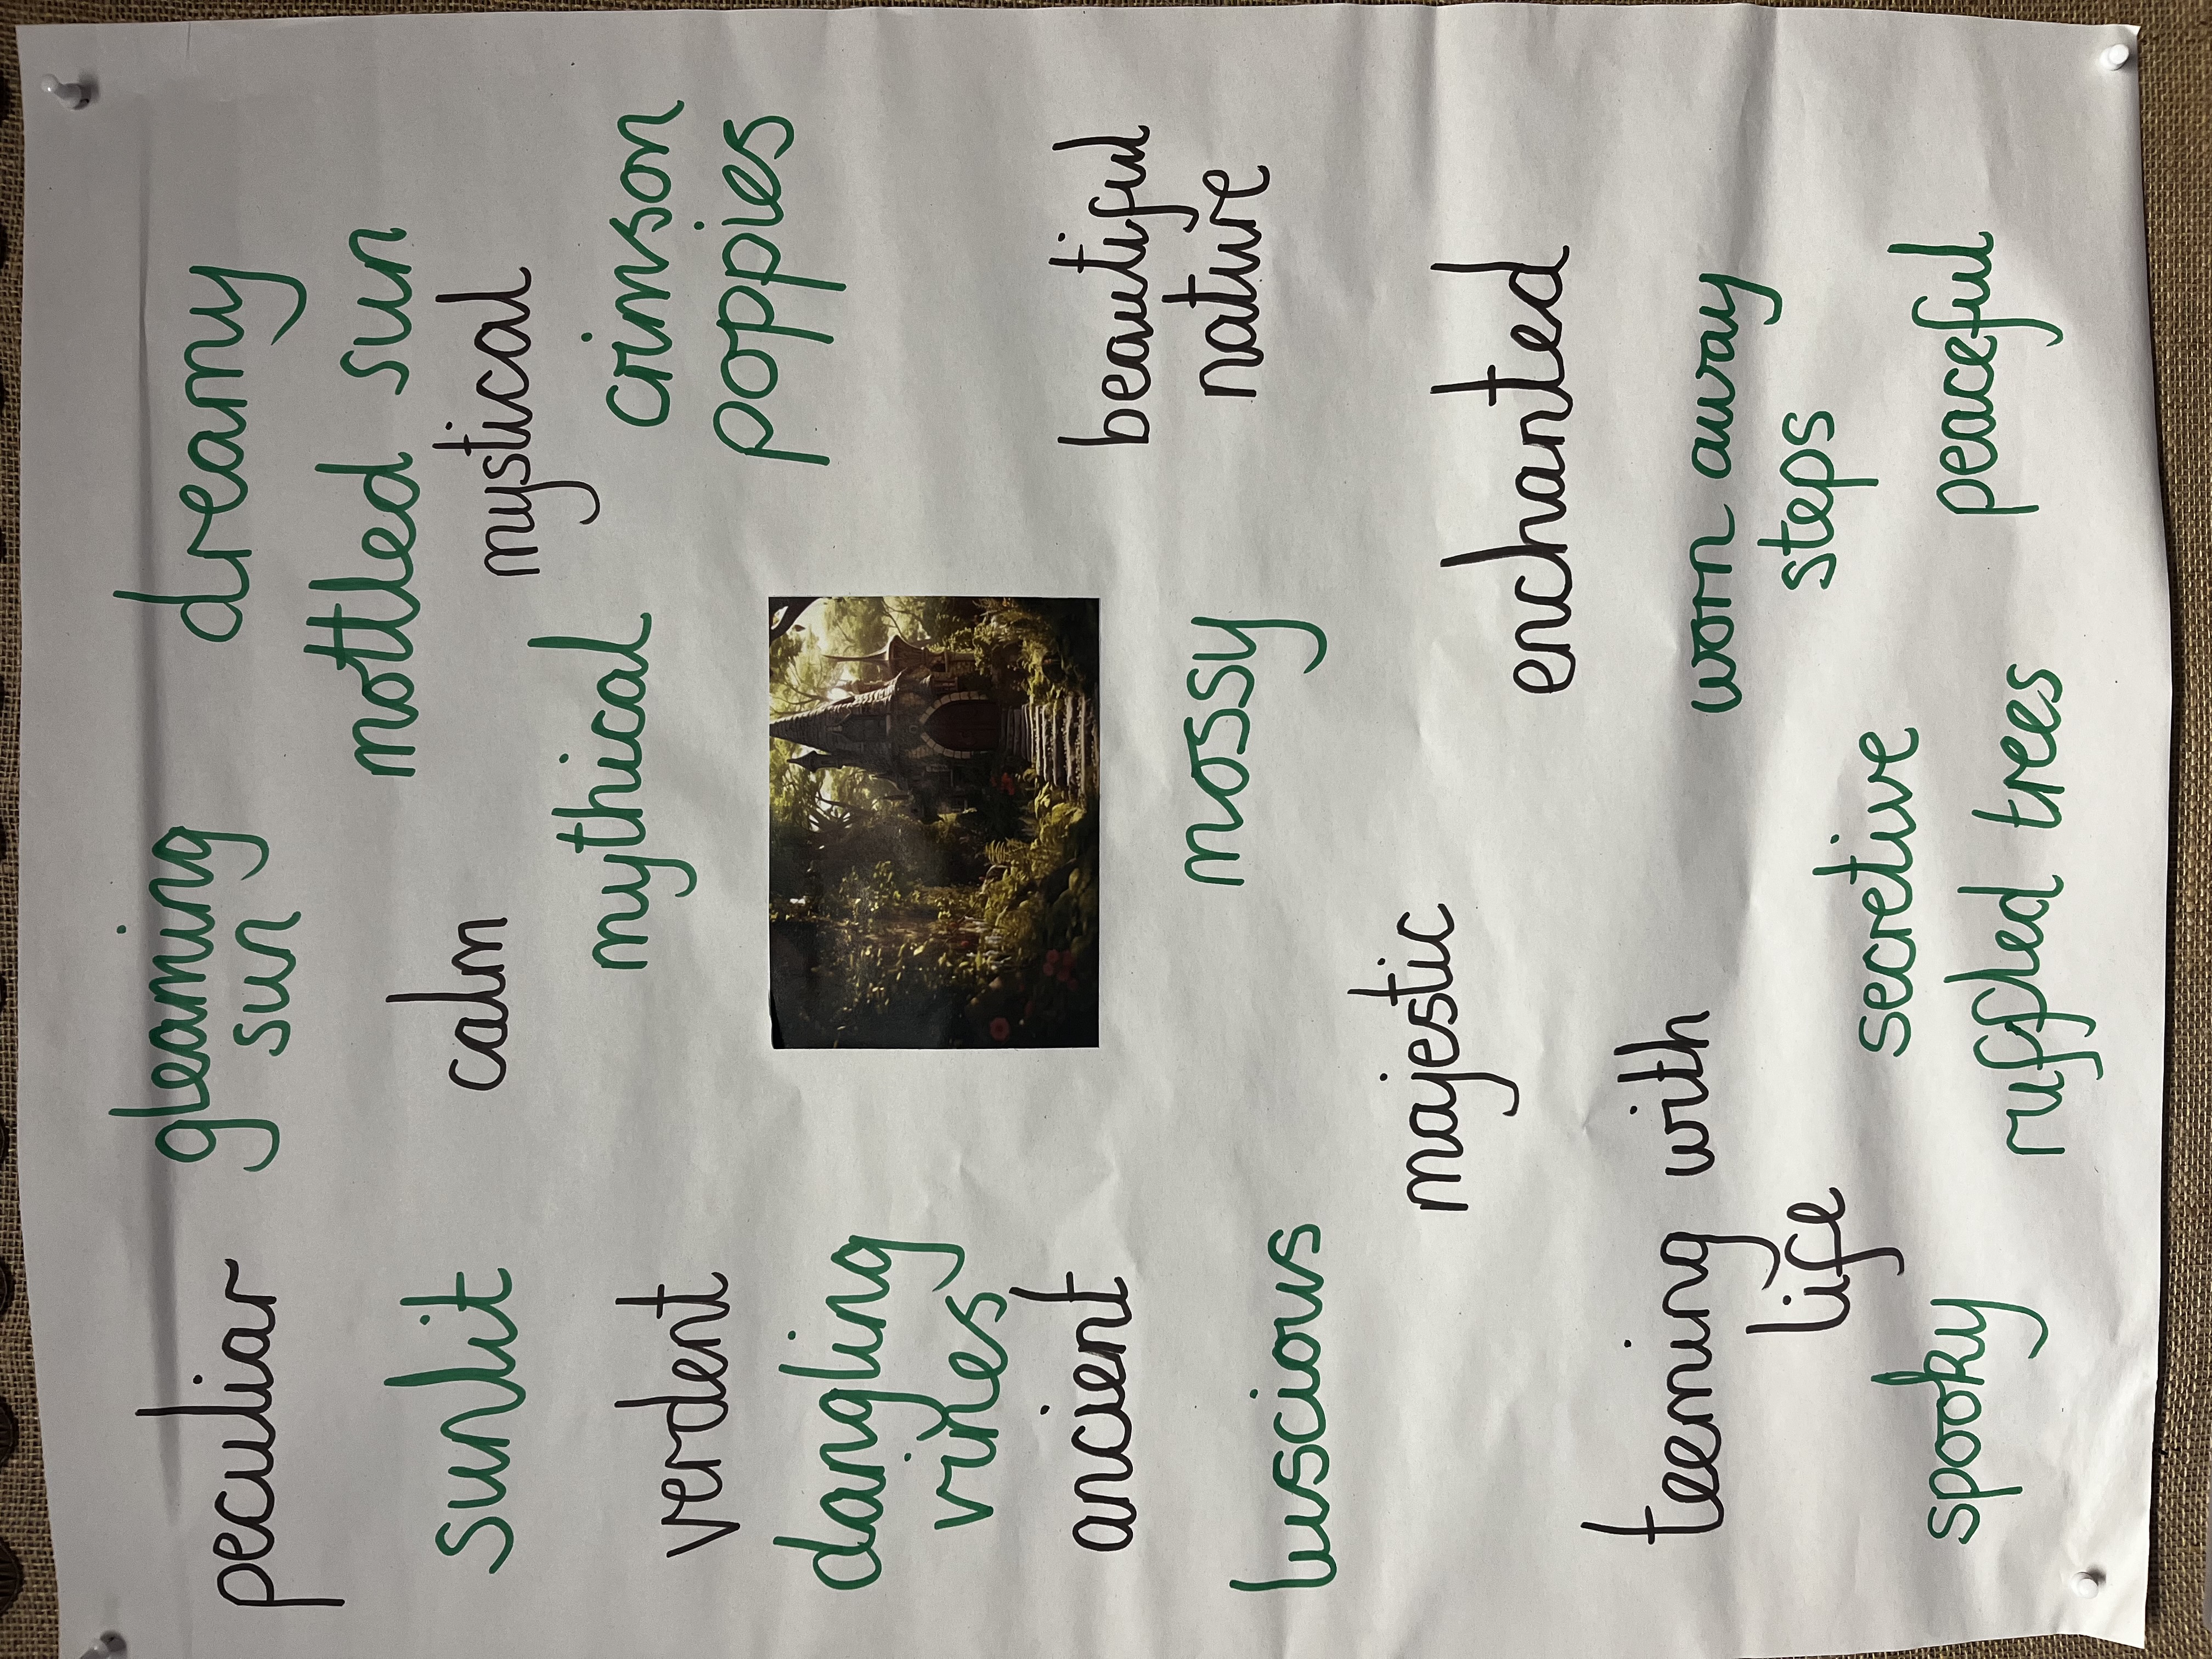 peculiar
gleaming
sun
dreamy
mottled sun
sunlit
calm
mystical
mythical
crimson
poppies
verdent
dangling
vines
ancient
beautiful
nature
mossy
luscious
majestic
enchanted
teeming with
life
worn away
steps
secretive
peaceful
spooky
ruffled trees